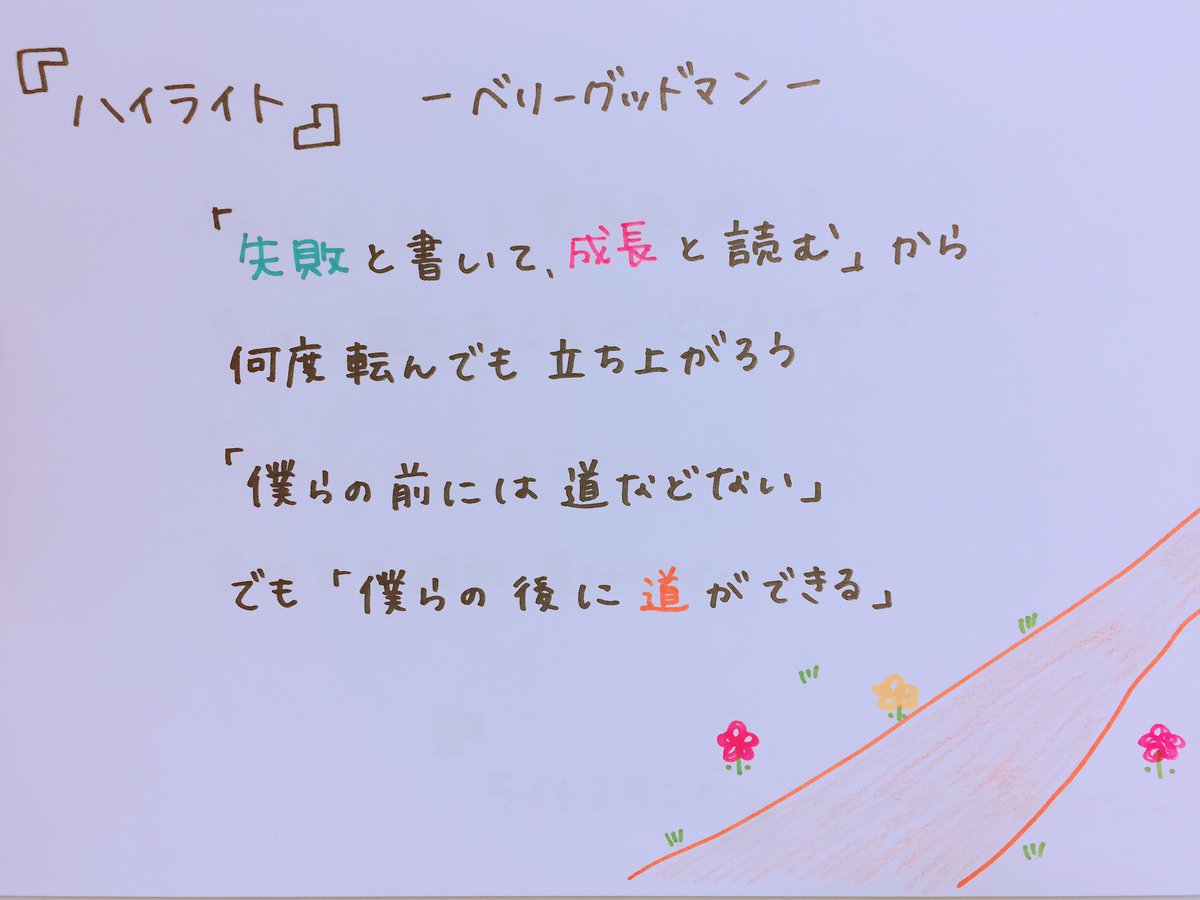 『ハイライト』 ーベリーグッドマンー
「失敗と書いて、成長と読む」から
何度転んでも立ち上がろう
「僕らの前には道などない」
でも「僕らの後に道ができる」